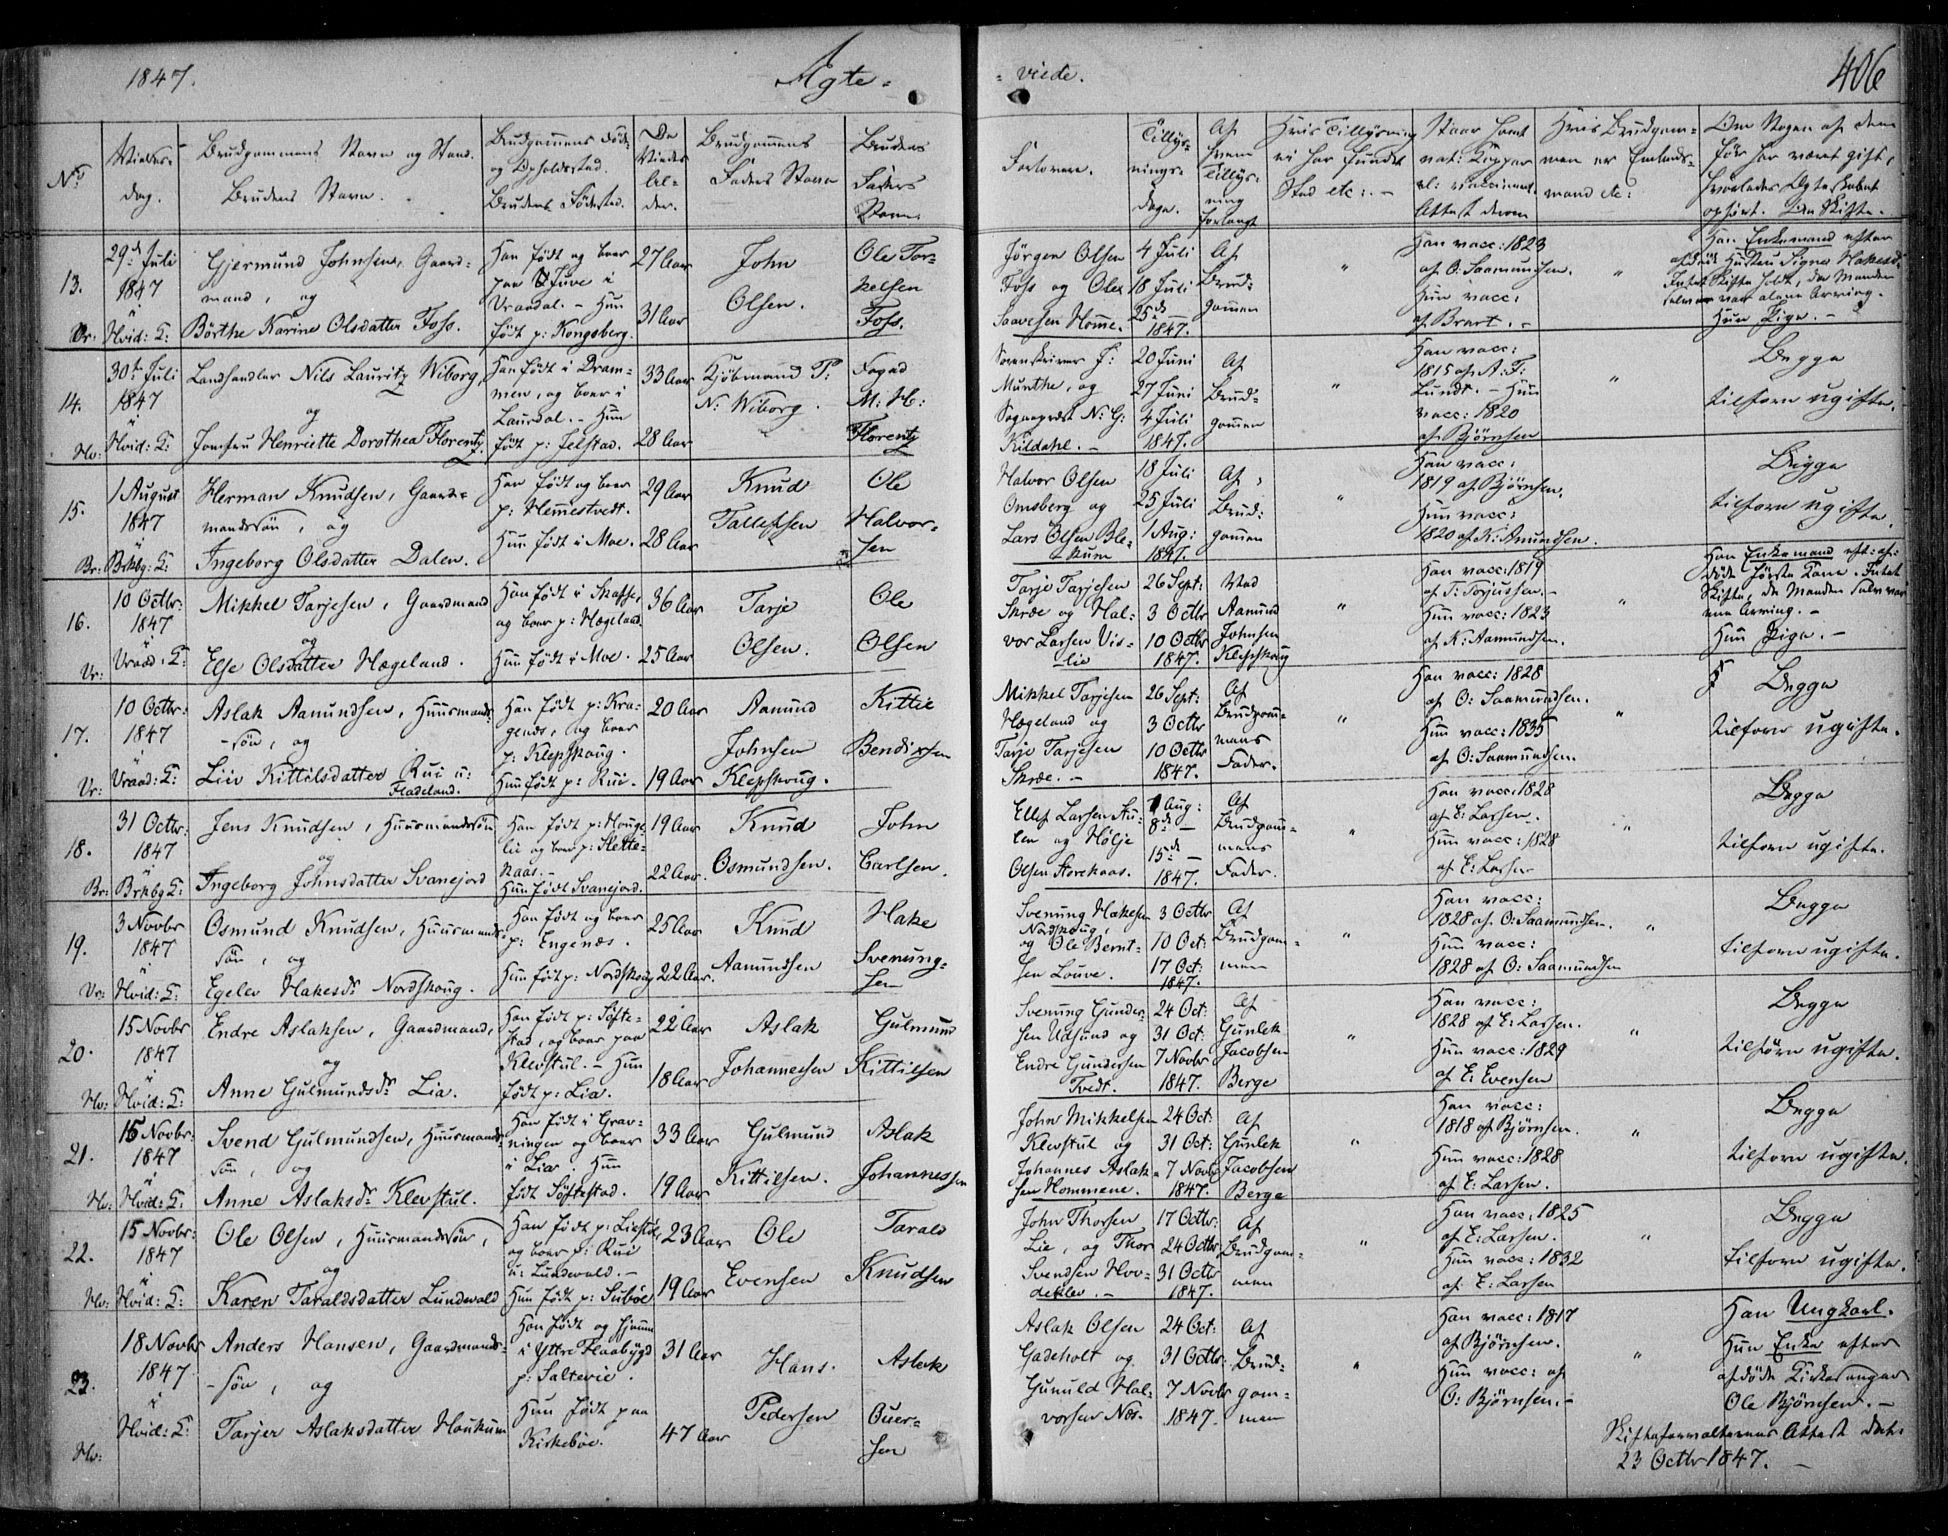 1847.
Ægte-
-viede.
406
No
Vielses-
dag.
Brudgommens Navn og Stand.
Brudens Navn.
Brudgommens Føde-
og Opholdssted.
Brudens Fødested.
De
Viedes
Al-
der.
Brudgommens
Faders Navn
Brudens
Faders
Navn.
Forlovere.
Tillys-
nings-
Dage.
Af
hvem
Tillys-
ning
forlangt
Hvis Tillysning
ei har fundet
Sted etc: -
Hvis Brudgom-
men er Enleds-
mand etc:
Om Nogen af dem
før har været gift,
hvorledes Ægteskabet
ophørt. Om Skifte.
13.
Vr:
29de Juli
1847
i
Hvid: K:
Gjermund Johnsen, Gaard-
mand, og
Börthe Karine Olsdatter Foss.
Han født og boer
paa Juve i
Vraadal. - Hun
født p: Kongsberg.
27 Aar
31 Aar
John
Olsen.
Ole Tor-
kelsen
Foss.
Jörgen Olsen
Foss og Ole
Saavesen Homme.
4 Juli
18 Juli
25de
1847.
Af
Brud-
gommen
Han vacc: 1823
af O: Saamundsen.
Hun vacc:
af Brart. -
"
Han Enkemand efter
afdøde Hustru Signe Hakesd:
Intet Skifte holdt, da Manden
selv var alene Arving. -
Hun Pige. -
14.
Hv:
30te Juli
1847
i
Hvid: K:
Landhandler Nils Lauritz Wiborg,
og
Jomfru Henriette Dorothea Florentz.
Han født i Dram-
men, og boer i
Laurdal. - Hun
født p: Selstad.
33 Aar
28 Aar
Kjöbmand P:
N: Wiborg.
Foged
M: H:
Florentz
Sorenskriver J:
Munthe, og
Sogneprest N: G:
Kildahl. -
20 Juni
27 Juni
4 Juli
1847.
Af
Brud-
gommen
"
Han vacc:
1815 af A: F:
Lundt. - Hun
vacc: 1820
af Björnsen
"
Begge
tilforn ugifte.
15.
Br:
1 August
1847
i
Brkbg: K:
Herman Knudsen, Gaard-
mandssön, og
Ingeborg Olsdatter Dalen.
Han født og boer
p: Hemestvedt.
Hun født i Moe.
29 Aar
28 Aar
Knud
Tallefsen
Ole
Halvor-
sen
Halvor Olsen
Omsberg og
Lars Olsen Ble-
kum
18 Juli
25 Juli
1 Aug:
1847.
Af
Brud-
gommen
"
Han vacc:
1819 af Björnsen.
Hun vacc:
1820 af K: Amundsen.
Begge
tilforn ugifte.
16.
Vr:
10 Octbr:
1847
i
Vraad: K:
Mikkel Tarjesen, Gaardmand
og
Else Olsdatter Hægeland.
Han født i Skafse,
og boer p: Hægeland.
Hun født i Moe.
36 Aar
25 Aar
Tarje
Olsen.
Ole
Olsen
Tarje Tarjesen
Skrée og Hal-
vor Larsen Vis-
lie
26 Sept:
3 Octbr
10 Octbr
1847.
Ved
Aamund
Johnsen
Klepskoug
"
Han vacc: 1819
af T: Torjussen. -
Hun vacc: 1823
af K: Aamundsen.
"
Han Enkemand eft: af-
døde første Kone. Intet
Skifte, da Manden selv var
ene Arving. -
Hun Pige. -
17.
Vr:
10 Octbr:
1847
i
Vraad: K:
Aslak Aamundsen, Huusmands-
-sön, og
Liv Kittilsdatter Rui u:
Fladeland.
Han født p: Kra-
gends, og boer
p: Klepskoug.
Hun født p: Rui.
20 Aar
19 Aar
Aamund
Johnsen
Klepskoug.
Kittil
Bendixsen
Mikkel Tarjesen
Hægeland og
Tarje Tarjesen
Skrée. -
26 Sept:
3 Octbr
10 Octbr
1847.
Af
Brudgom-
mens
Fader.
"
Han vacc: 1828
af O: Saamundsen.
Hun vacc: 1835
af O: Saamundsen.
"
Begge
tilforn ugifte.
18.
Br:
31 Octbr:
1847
i
Brkbg K:
Jens Knudsen, Huusmandssön
og
Ingeborg Johnsdatter Svanejord
Han født p: Houge-
lie og boer p: Slette-
kaas.
Hun født Svanejord.
19 Aar
22 Aar.
Knud
Osmundsen.
John
Carlsen.
Ellef Larsen Au-
len og Hölje
Olsen Storekaas.
1 Aug:
8de -
15de -
1847.
Af
Brudgom-
mens
Fader.
"
Han vacc: 1828
af E: Larsen.
Hun vacc: 1828
af E: Larsen
"
Begge
tilforn ugifte.
19.
Vr:
3 Novbr
1847
i
Hvid: K:
Osmund Knudsen, Huusmands-
sön, og
Egelev Hakesdr Nordskoug.
Han født og boer
p: Engenæs.
Hun født p: Nordskoug
25 Aar
22 Aar.
Knud
Aamundsen
Hake
Svenung-
sen
Svenung Hakesen
Nordskoug,
og Ole Bernt-
sen Louve.
3 Octbr
10 Oct:
17 Oct:
1847.
Af
Brudgom-
men
"
Han vacc:
1828 af O: Saamundsen.
Hun vacc:
1828 af O: Saamundsen
"
Begge
tilforn ugifte.
20.
Hv:
15 Novbr
1847
i
Hvid: K:
Endre Aslaksen, Gaardmand,
og
Anne Gulmundsdr Lia.
Han født p: Söfte-
stad, og boer paa
Klevstul. - Hun
født p: Lia.
22 Aar
18 Aar
Aslak
Johannesen
Gulmund
Kittilsen
Svenung Gunder-
sen Udsund og
Endre Gundersen
Tvedt.
24 Oct:
31 Oct:
7 Novbr
1847.
Af
Gunlek
Jacobsen
Berge
"
Han vacc:
1828 af E: Larsen.
Hun vacc: 1829
af E: Evensen
"
Begge
tilforn ugifte.
21.
Hv:
15 Novbr:
1847
i
Hvid: K:
Svend Gulmundsen, Huusmands-
sön, og
Anne Aslaksdr Klevstul.
Han født i Grav-
ningen og boer
i Lia. Hun
født Söftestad.
33 Aar
19 Aar
Gulmund
Kittilsen.
Aslak
Johannessen
John Mikkelsen
Klevstul og
Johannes Aslak-
sen Hommene.
24 Oct:
31 Oct:
7 Novbr
1847.
Af
Gunlek
Jacobsen
Berge
"
Han vacc:
1818 af Björnsen.
Hun vacc: 1828
af E: Larsen.
"
Begge
tilforn ugifte.
22.
Hv:
15 Novbr:
1847
i
Hvid: K:
Ole Olsen, Huusmandssön,
og
Karen Taraldsdatter Lundevald
Han født p: Liestöl,
og boer p: Rui
u: Lundevald. -
Hun født p: Subøe
23 Aar
19 Aar
Ole
Evensen
Tarald
Knudsen
John Thorsen
Lie, og Thor
Svendsen Hov-
deklev. -
17 Octbr:
24 Octbr
31 Octbr
1847.
Af
Brudgom-
men
"
Han vacc: 1825
af E: Larsen.
Hun vacc: 1832
af E: Larsen
"
Begge
tilforn ugifte.
23.
Hv:
18 Novbr
1847
i
Hvid: K:
Anders Hansen, Gaardmands-
-sön, og
Tarjer Aslaksdatter Houkum
Han født og hjemme
i Yttre Flaabygd
p: Saltevie.
Hun født paa
Kirkebøe.
31 Aar
47 Aar
Hans.
Pedersen
Aslak
Ouer-
sen
Aslak Olsen
Gadeholt og
Gunuld Hal-
vorsen Næs.
24 Oct:
31 Octbr:
7 Novbr
1847.
Af
Brud-
gom-
men
"
Han vacc: 1817
af Björnsen.
Hun vacc: af
O: Björnsen. -
"
Han Ungkarl.
Hun Enke efter
afdøde Kirkesanger
Ole Björnsen. -
Skifteforvalterens Attest dat:
23 Octbr 1847. -